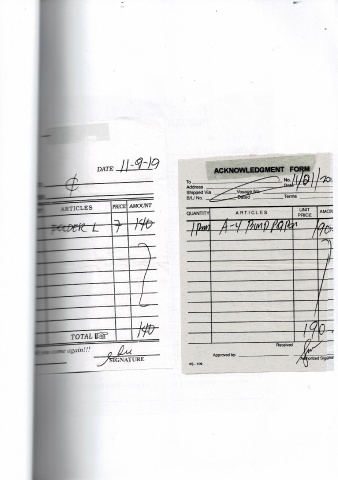 DATE 11-9-19
ARTICLES PRICE AMOUNT
FOLDER L 7 140
TOTAL 140
come again!!!
SIGNATURE
ACKNOWLEDGMENT FORM
To No.
Address Date
Shipped Via Voyage No.
B/L/ No. Dated Terms
QUANTITY ARTICLES UNIT PRICE
A-4 Bond Paper 190
190
Received
Approved by:
Authorized Signature